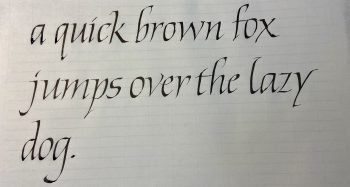 a quick brown fox
jumps over the lazy
dog.